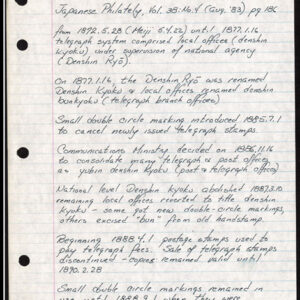 Japanese Philately, Vol. 38: No. 4 (Aug. '83) pg 186
from 1872.5.28 (Meiji 5.4.22) until 1877.1.16
telegraph system comprised local offices (denshin
kyoku) under supervision of national agency
(Denshin Ryō).
On 1877.1.16, the Denshin Ryō was renamed
Denshin Kyoku & local offices renamed denshin
bunkyoku (telegraph branch offices)
Small double circle marking introduced 1885.7.1
to cancel newly issued telegraph stamps.
Communications Ministry decided on 1886.11.16
to consolidate many telegraph & post offices
as yubin denshin kyoku (post & telegraph office)
National level Denshin kyoku abolished 1887.3.10
remaining local offices reverted to title denshin
kyoku - some got new double-circle markings,
others excised "bun" from old handstamp.
Beginning 1888.4.1 postage stamps used to
pay telegraph fees. Sale of telegraph stamps
discontinued - copies remained valid until
1890.2.28
Small double circle markings remained in
use until 1888.9.1 when they were